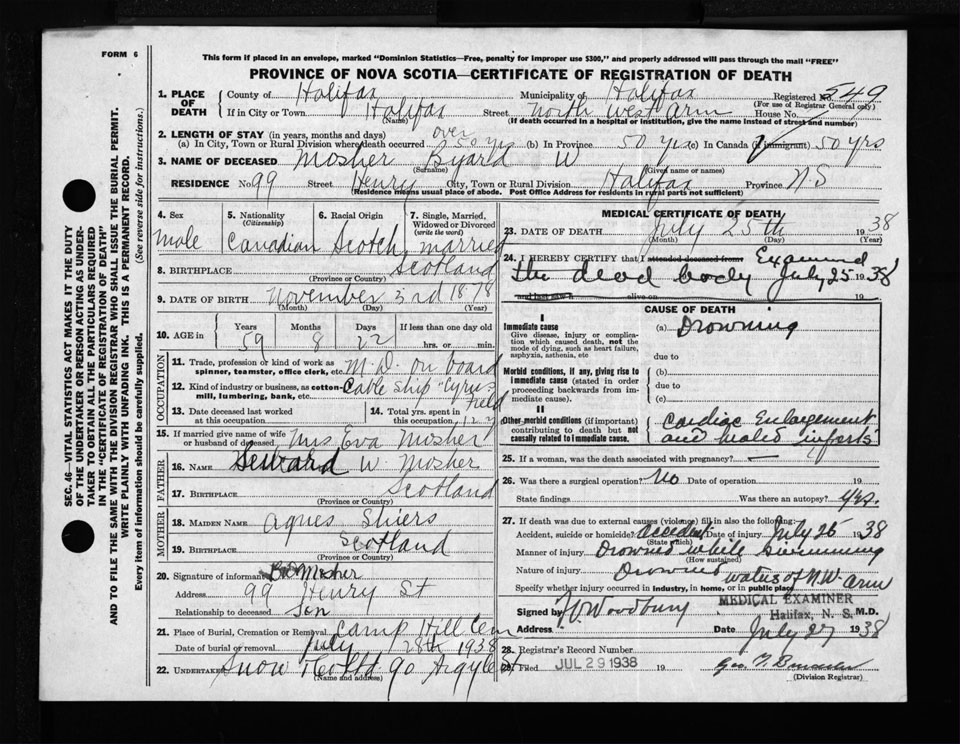 FORM 6
This form if placed in an envelope, marked "Dominion Statistics—Free, penalty for improper use $300," and properly addressed will pass through the mail "FREE"
PROVINCE OF NOVA SCOTIA—CERTIFICATE OF REGISTRATION OF DEATH
1. PLACE OF DEATH County of Halifax Municipality of Halifax Registered No. 549
(For use of Registrar General only)
If in City or Town Halifax (Name) Street North West Arm House No.
(If death occurred in a hospital or institution, give the name instead of street and number)
2. LENGTH OF STAY (in years, months and days)
(a) In City, Town or Rural Division where death occurred over 50 yrs (b) In Province 50 yrs (c) In Canada (if immigrant) 50 yrs
3. NAME OF DECEASED Mosher Byard W
(Surname) (Given name or names)
RESIDENCE No 99 Street Henry City, Town or Rural Division Halifax Province N.S
(Residence means usual place of abode. Post Office Address for residents in rural parts not sufficient)
4. Sex 5. Nationality (Citizenship) 6. Racial Origin 7. Single, Married, Widowed or Divorced (write the word)
Male Canadian Scotch married
8. BIRTHPLACE Scotland
(Province or Country)
9. DATE OF BIRTH November 3rd 1878
(Month) (Day) (Year)
10. AGE in Years Months Days If less than one day old
59 8 22 hrs. or min.
OCCUPATION
11. Trade, profession or kind of work as spinner, teamster, office clerk, etc. M.D. on board
12. Kind of industry or business, as cotton-mill, lumbering, bank, etc. Cable ship "Cyrus Field
13. Date deceased last worked at this occupation 14. Total yrs. spent in this occupation 12 yrs
15. If married give name of wife or husband of deceased Mrs Eva Mosher
FATHER
16. NAME W. Mosher
17. BIRTHPLACE Scotland
(Province or Country)
MOTHER
18. MAIDEN NAME Agnes
19. BIRTHPLACE Scotland
(Province or Country)
20. Signature of informant Mosher
Address 99 Henry St
Relationship to deceased Son
21. Place of Burial, Cremation or Removal Camp Hill Cem
Date of burial or removal July 28th 1938
22. UNDERTAKER Snow & Co Ltd 90 Argyle St
(Name and address)
MEDICAL CERTIFICATE OF DEATH
23. DATE OF DEATH July 25th 1938
(Month) (Day) (Year)
24. I HEREBY CERTIFY that I attended deceased from Examined
the dead body July 25 1938
and last saw h alive on 19
CAUSE OF DEATH
I
Immediate cause
Give disease, injury or complication which caused death, not the mode of dying, such as heart failure, asphyxia, asthenia, etc
(a) Drowning
due to
Morbid conditions, if any, giving rise to immediate cause (stated in order proceeding backwards from immediate cause).
(b)
due to
(c)
II
Other morbid conditions (if important) contributing to death but not causally related to immediate cause.
Cardiac Enlargement
and healed infarcts
25. If a woman, was the death associated with pregnancy? —
26. Was there a surgical operation? No Date of operation 19
State findings Was there an autopsy? yes.
27. If death was due to external causes (violence) fill in also the following:
Accident, suicide or homicide? accident Date of injury July 25 1938
(State which)
Manner of injury Drowned while swimming
(How sustained)
Nature of injury Drowned waters of N.W. Arm
Specify whether injury occurred in industry, in home, or in public place
Signed by Woodbury MEDICAL EXAMINER M.D.
Halifax, N. S.
Address Date July 27 1938
28. Registrar's Record Number
29. Filed JUL 29 1938 19 Geo. 
(Division Registrar)
SEC. 46—VITAL STATISTICS ACT MAKES IT THE DUTY
OF THE UNDERTAKER OR PERSON ACTING AS UNDER-
TAKER TO OBTAIN ALL THE PARTICULARS REQUIRED
IN THE "CERTIFICATE OF REGISTRATION OF DEATH"
AND TO FILE THE SAME WITH THE DIVISION REGISTRAR WHO SHALL ISSUE THE BURIAL PERMIT.
WRITE PLAINLY WITH UNFADING INK. THIS IS A PERMANENT RECORD.
Every item of information should be carefully supplied. (See reverse side for instructions.)